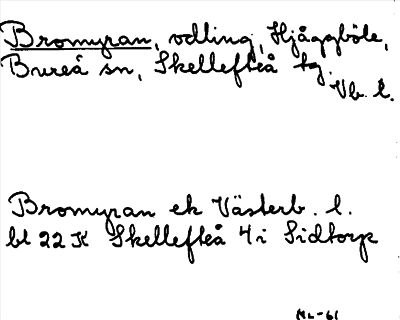 Bromyran, odling, Hjåggböle,
Bureå sn, Skellefteå tg.
Vb. l.
Bromyran ek Västerb. l.
bl 22 K Skellefteå 4 i Sidtorp
ML-61